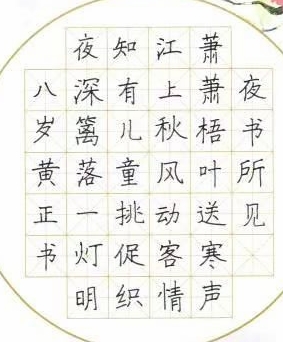 夜书所见
萧萧梧叶送寒声
江上秋风动客情
知有儿童挑促织
夜深篱落一灯明
八岁黄正书